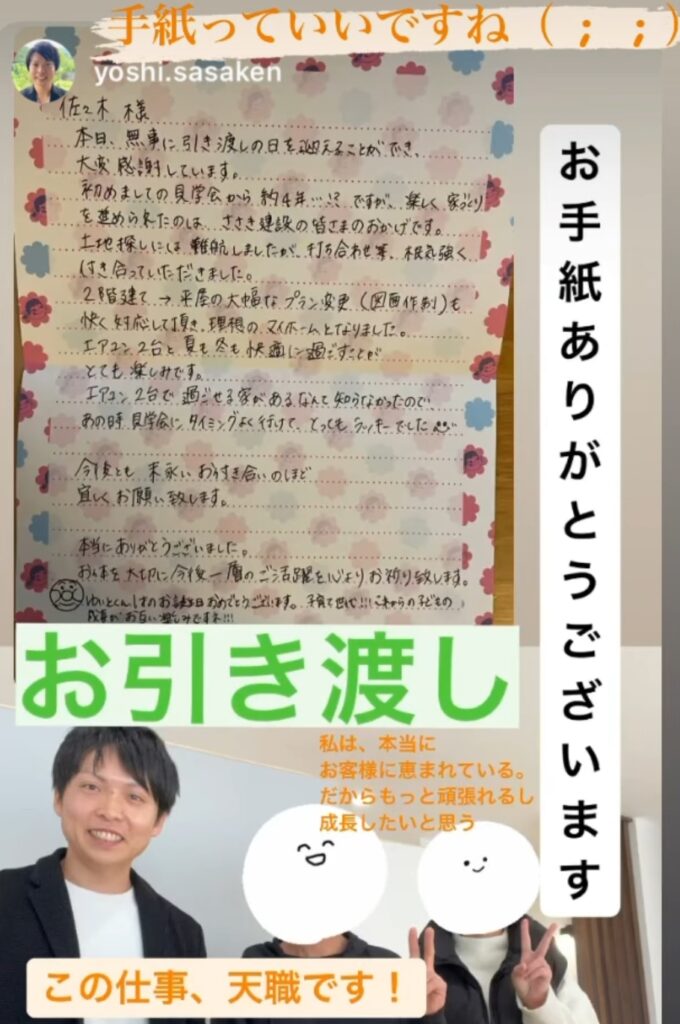 手紙っていいですね（；；）
yoshi.sasaken
佐々木 様
本日、無事に引き渡しの日を迎えることができ、
大変感謝しています。
初めましての見学会から約4年…!? ですが、楽しく家づくり
を進められたのは、ささき建設の皆さまのおかげです。
土地探しには難航しましたが、打ち合わせ等、根気強く
付き合っていただきました。
2階建て→平屋の大幅なプラン変更（図面作成）も
快く対応して頂き、理想のマイホームとなりました。
エアコン2台と夏も冬も快適に過ごすことが
とても楽しみです。
エアコン2台で過ごせる家があるなんて知らなかったので、
あの時見学会にタイミングよく行けて、とってもラッキーでした
今後とも末永いお付き合いのほど
宜しくお願い致します。
本当にありがとうございました。
お体を大切に今後一層のご活躍を心よりお祈り致します。
ゆいとくん1才のお誕生日おめでとうございます。子育て世代!!これからの子どもの
成長がお互い楽しみですネ!!!
お手紙ありがとうございます
お引き渡し
私は、本当に
お客様に恵まれている。
だからもっと頑張れるし
成長したいと思う
この仕事、天職です！